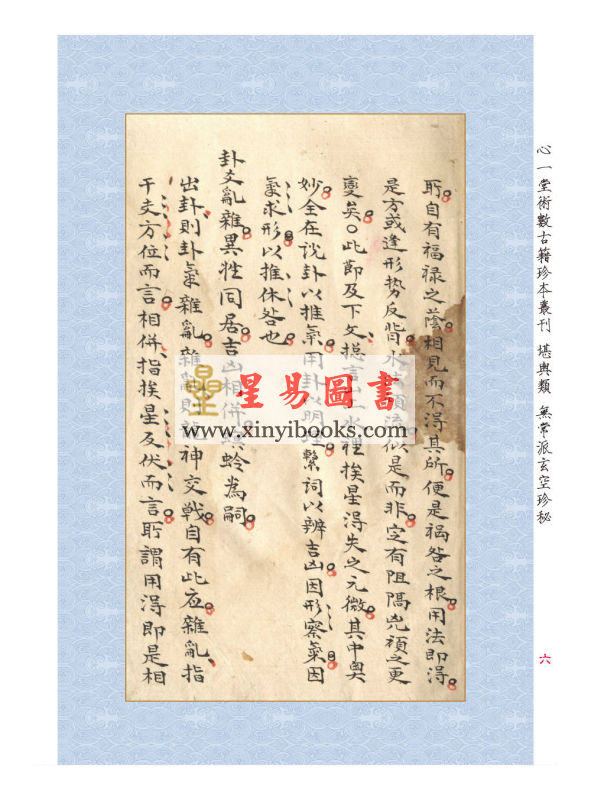 心一堂術數古籍珍本叢刊 堪輿類 無常派玄空珍秘
六
所自有福祿之蔭相見而不得其所便是禍咎之根用法即得
是方或逢形势反背水 似是而非定有阻隔兇禎之更
變矣○此節及下文摠言山水裡挨星得失之元微其中奥
妙全在說卦以推氣用卦以明理繫词以辨吉凶因形察氣因
氣求形以推休咎也
卦爻亂雜異性同居吉凶相併螟蛉為嗣
出卦則卦氣雜亂雜亂則龍神交戰自有此应雜亂指
干支方位而言相併指挨星反伏而言所謂用得即是相
星易圖書
www.xinyibooks.com